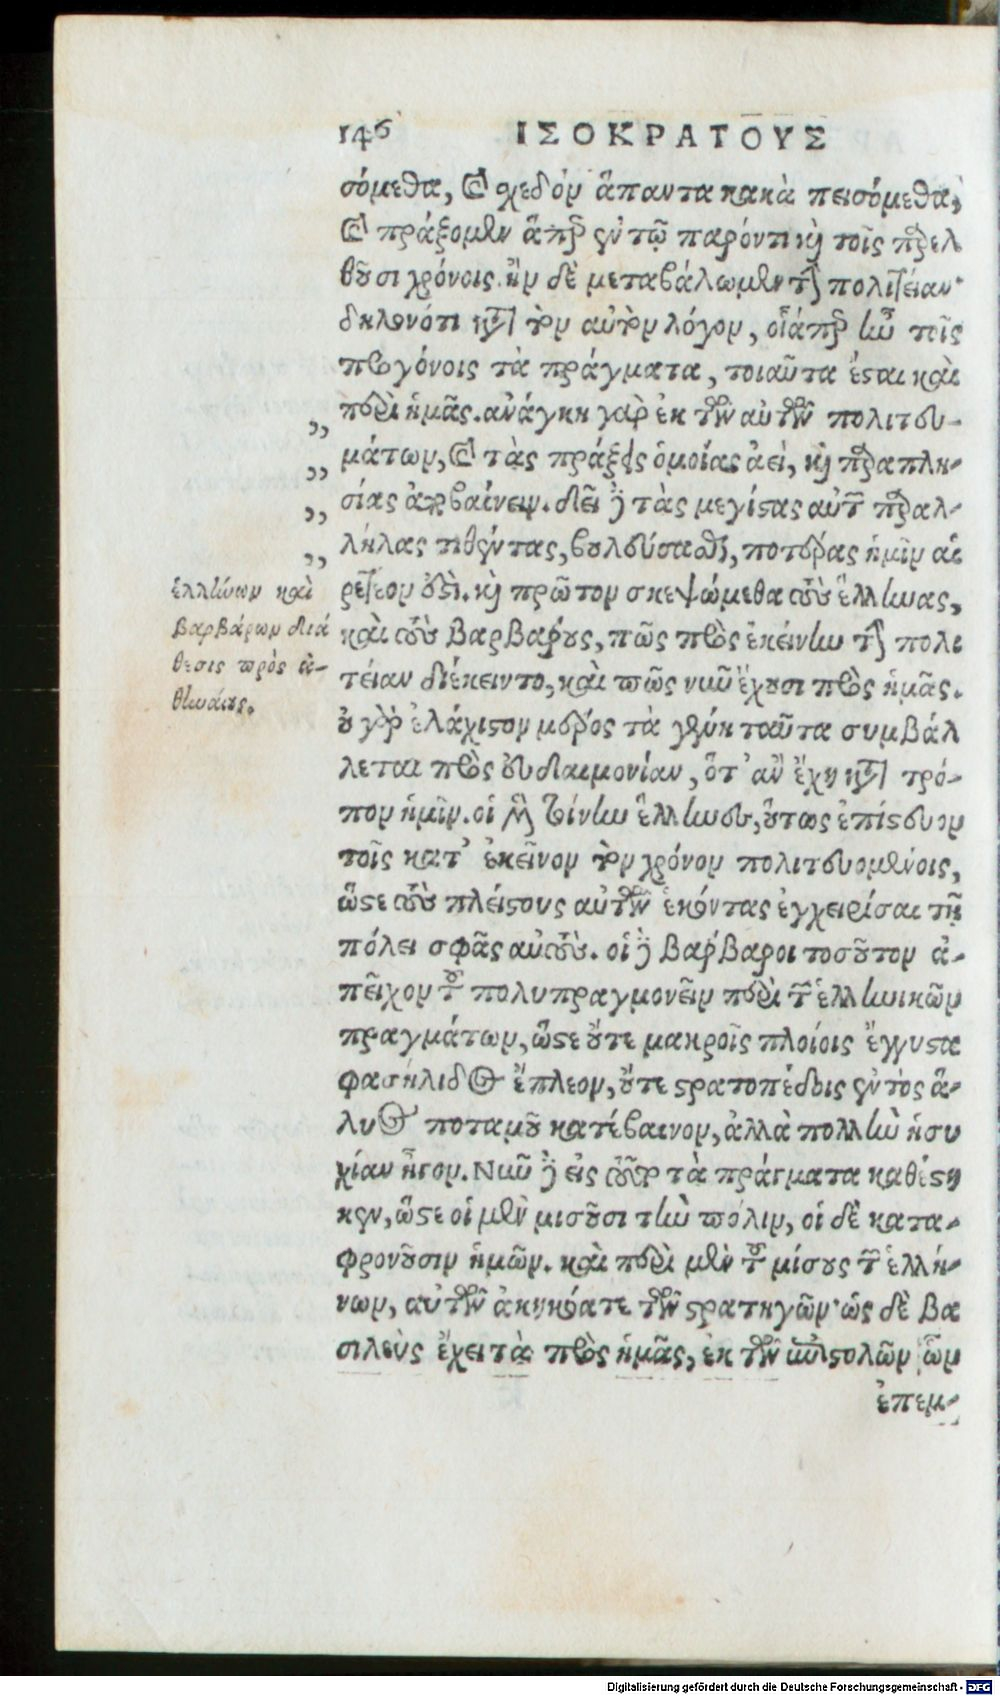 146 ΙΣΟΚΡΑΤΟΥΣ
σόμεθα, καὶ σχεδὸν ἅπαντα κακὰ πεισόμεθα,
καὶ πράξομεν ἅπερ ἐν τῷ παρόντι καὶ τοῖς παρελ
θοῦσι χρόνοις. ἢν δὲ μεταβάλωμεν τὴν πολιτείαν·
δηλονότι κατὰ τὸν αὐτὸν λόγον, οἷάπερ ἦν τοῖς
προγόνοις τὰ πράγματα, τοιαῦτα ἔσται καὶ
περὶ ἡμᾶς. ἀνάγκη γὰρ ἐκ τῶν αὐτῶν πολιτευ-
„ μάτων, καὶ τὰς πράξεις ὁμοίας ἀεὶ, καὶ παραπλη-
„ σίας ἀποβαίνειν. δεῖ δὲ τὰς μεγίστας αὐτῶν παραλ-
„ λήλας τιθέντας, βουλεύσασθαι, ποτέρας ἡμῖν αἱ
„ ρετέον ἐστὶ. καὶ πρῶτον σκεψώμεθα τοὺς ἕλληνας,
καὶ τοὺς βαρβάρους, πῶς πρὸς ἐκείνην τὴν πολι
τείαν διέκειντο, καὶ πῶς νῦν ἔχουσι πρὸς ἡμᾶς.
οὐ γὰρ ἐλάχιστον μέρος τὰ γένη ταῦτα συμβάλ
λεται πρὸς εὐδαιμονίαν, ὅτ' ἂν ἔχῃ κατὰ τρό-
πον ἡμῖν. οἱ μὲν τοίνυν ἕλληνες, οὕτως ἐπίστευον
τοῖς κατ' ἐκεῖνον τὸν χρόνον πολιτευομένοις,
ὥστε τοὺς πλείστους αὐτῶν ἑκόντας ἐγχειρίσαι τῇ
πόλει σφᾶς αὐτούς. οἱ δὲ βάρβαροι τοσοῦτον ἀ-
πεῖχον τοῦ πολυπραγμονεῖν περὶ τῶν ἑλληνικῶν
πραγμάτων, ὥστε οὔτε μακροῖς πλοίοις ἔγγιστα
φασήλιδος ἔπλεον, οὔτε στρατοπέδοις ἐντὸς ἅ-
λυος ποταμοῦ κατέβαινον, ἀλλὰ πολλὴν ἡσυ
χίαν ἦγον. Νῦν δὲ εἰς τοῦτο τὰ πράγματα καθέστη
κεν, ὥστε οἱ μὲν μισοῦσι τὴν πόλιν, οἱ δὲ κατα-
φρονοῦσιν ἡμῶν. καὶ περὶ μὲν τοῦ μίσους τῶν ἑλλή-
νων, αὐτῶν ἀκηκόατε τῶν στρατηγῶν· ὡς δὲ βα
σιλεὺς ἔχει τὰ πρὸς ἡμᾶς, ἐκ τῶν ἐπιστολῶν ὧν
ἐπεμ-
ἑλλήνων καὶ
βαρβάρων διά
θεσις πρὸς ἀ-
θηναίους.
Digitalisierung gefördert durch die Deutsche Forschungsgemeinschaft - DFG